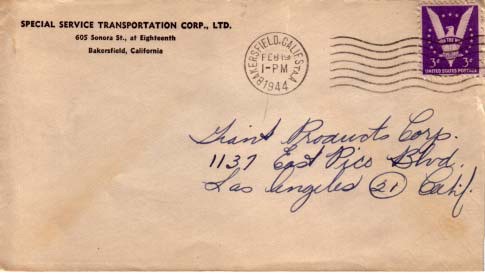 SPECIAL SERVICE TRANSPORTATION CORP., LTD.
605 Sonora St., at Eighteenth
Bakersfield, California
BAKERSFIELD, CALIF. STA.A
FEB 19
1-PM
1944
WIN THE WAR
3¢ 3¢
UNITED STATES POSTAGE
Giant Products Corp.
1137 East Pico Blvd.
Los Angeles 21 Calif.